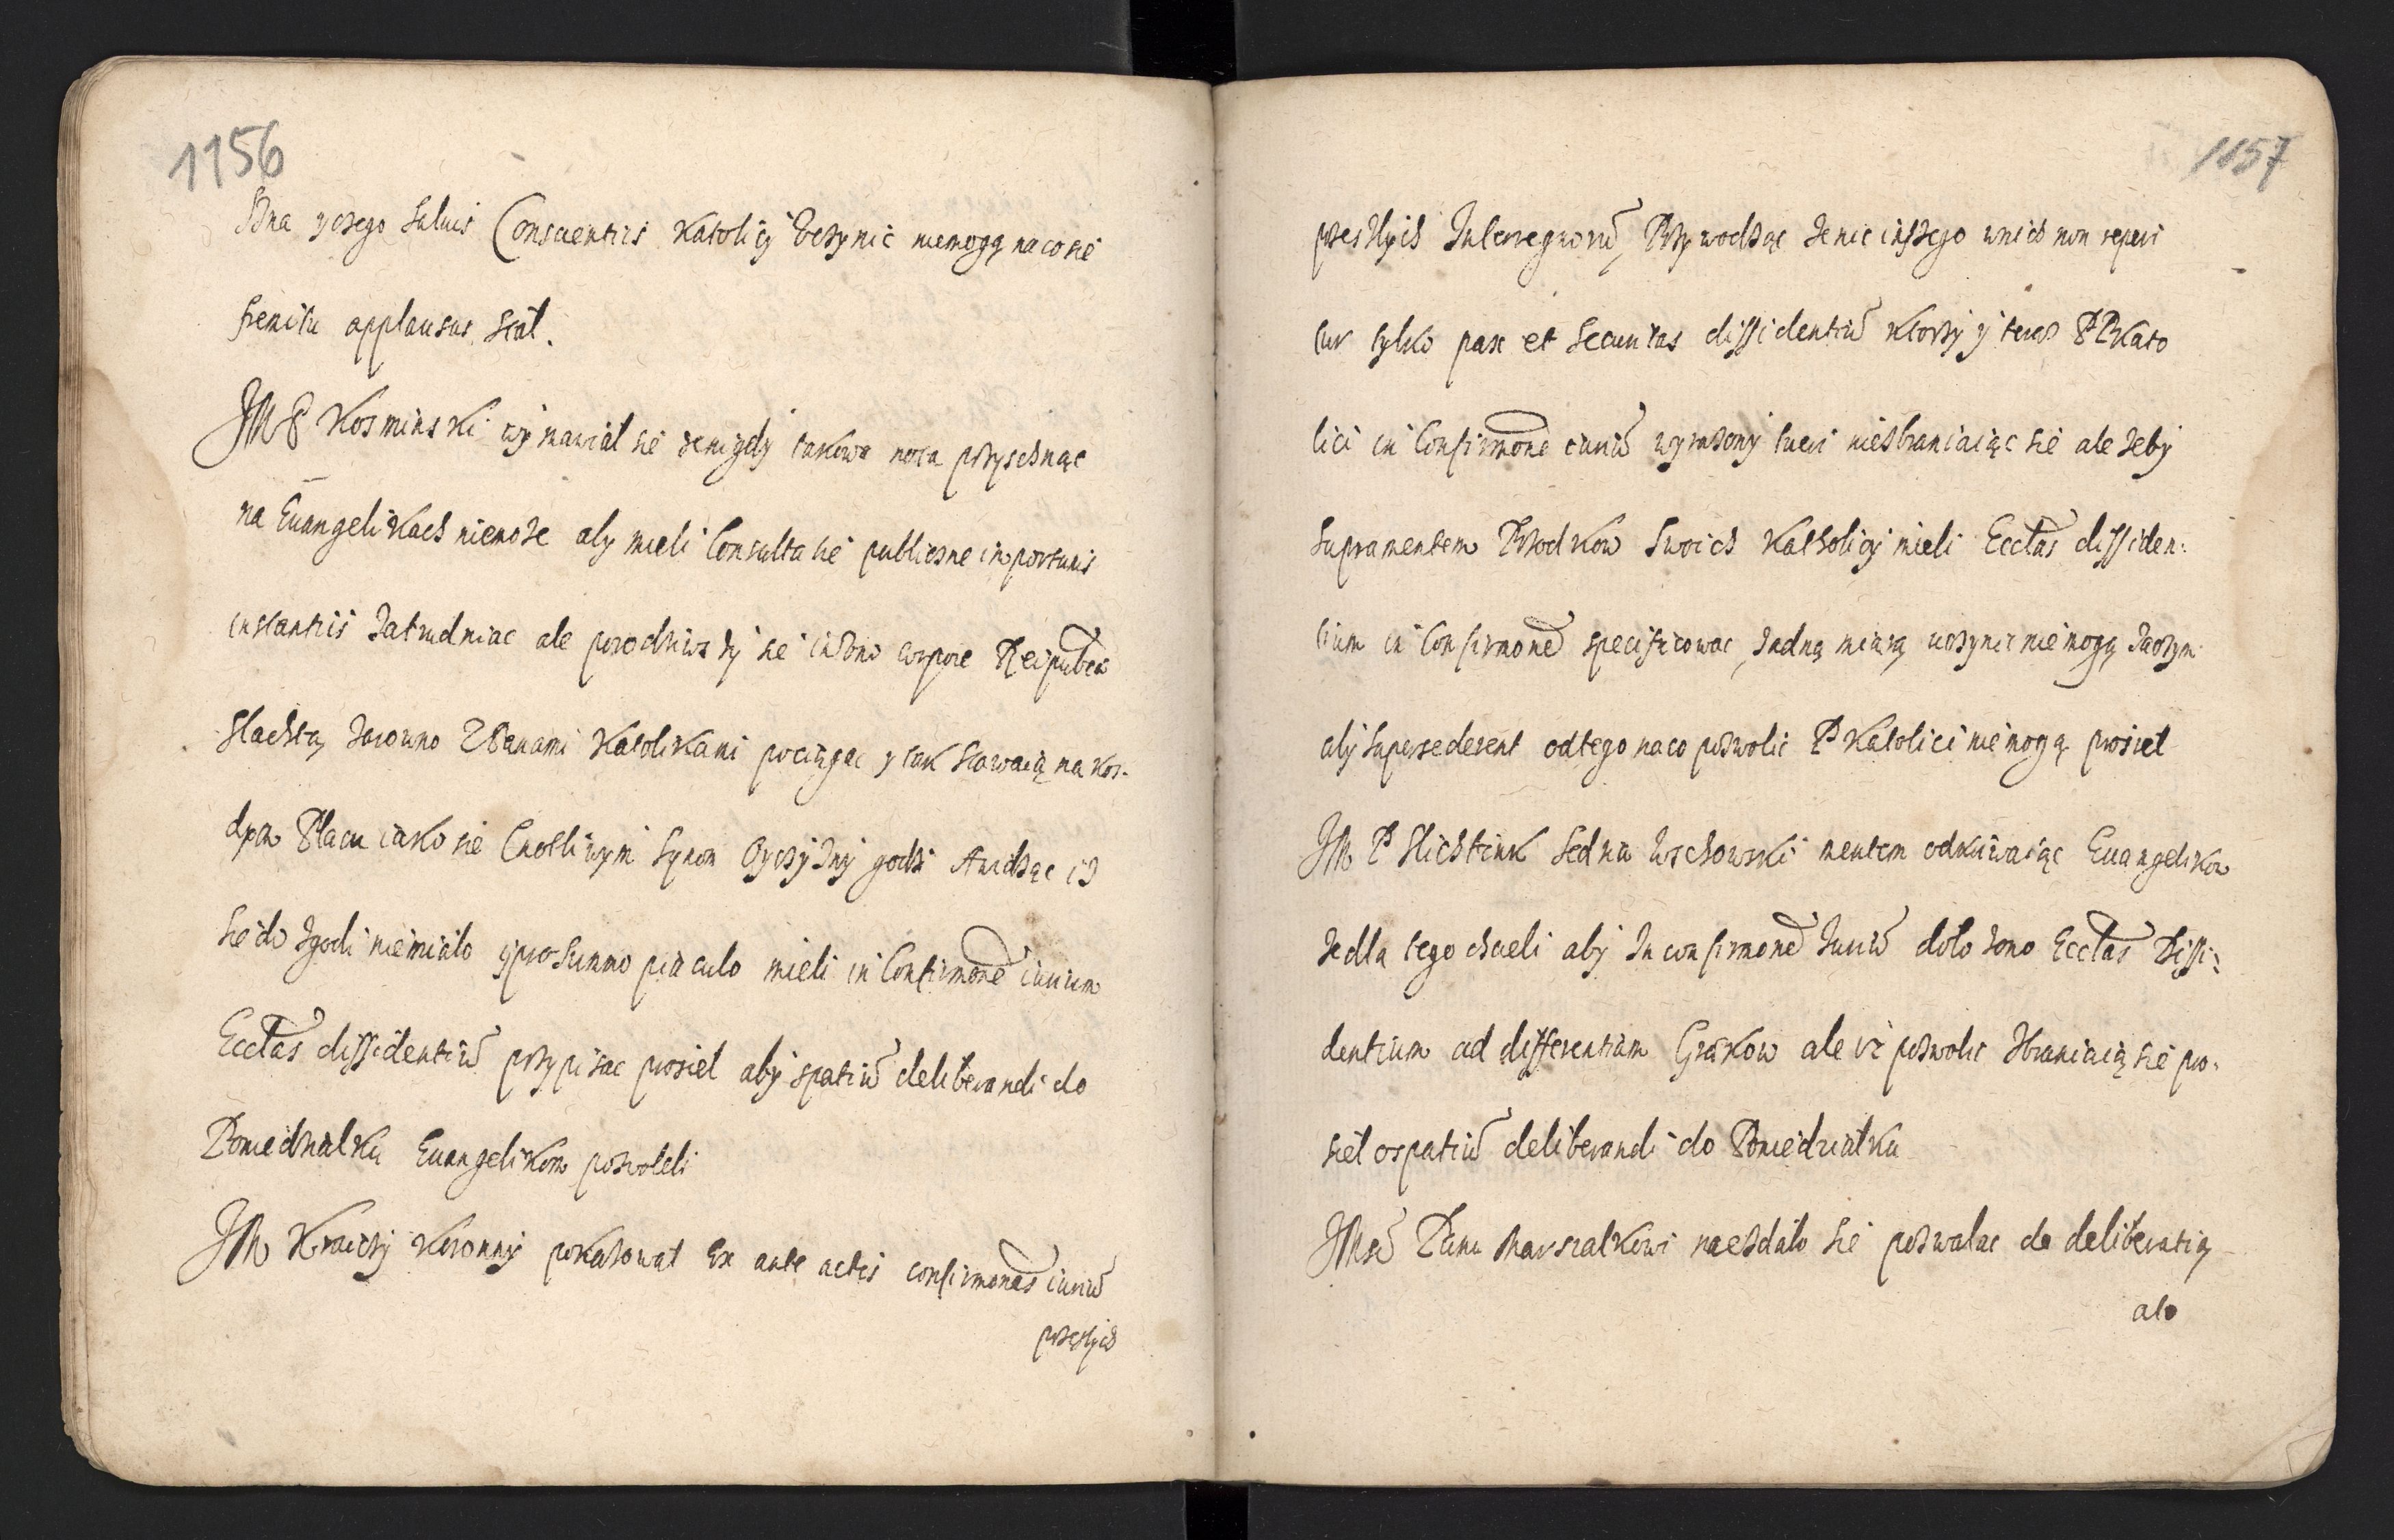 1156
zna y czego saluis Conscientiis Katolicy Uczynic niemogą na co się
fremitu applausus stał.
JMP Kosminski wymawiał się ze nigdy takowa nota przyschnąc
na Euangelikach niemoze aby mieli Consulta sie publiczne inportunis
instantiis zatrudniac ale porodziwszy sie in Bono corpore Reipubcæ
slachtą zarowno z Panami Katolikami pociągac y tak stawaią na koz-
dym Placu iako sie Cnotliwym synom Oyczyzny godzi A widząc iz
sie do zgodi niemiało y pro summo piaculo mieli in Confirmone iurium
Ecctas dissidentiũ przypisac prosiel aby spatiũ deliberandi do
Poniedziałku Euangelikom pozwolili
JM Kraiczy Koronny pokazował Ex ante actis confirmones iuriũ
przeszlych
1157
przeszlych Interregnorũ, Przywodząc ze nic inszego w nich non reperi
tur tylko pax et securitas dissidentiũ ktorzy y teraz PP Kato
lici in Confirmone iuriũ wyrazony tueri niezbraniaiąc sie ale zeby
supra mentem Przodkow swoich Katholicy mieli Ecctas dissiden:
tium in Confirmone specificowac, zadną miarą uczynic niemogą zaczym
aby supersederent od tego na co pozwolic P Katolici niemogą prosiel
JM P Slichtink Sedzia Wschowski mentem odkriwaiąc Euangelikow
ze dla tego chcieli aby In confirmone Iuriũ dolozono Ecctas Dissi:
dentium ad differentiam Grækow ale iz pozwolic zbraniaią sie pro-
siel o spatiũ deliberandi do Poniedziałku
JMsci Panu Marszalkowi niezdało sie pozwalac do deliberatiy
ale